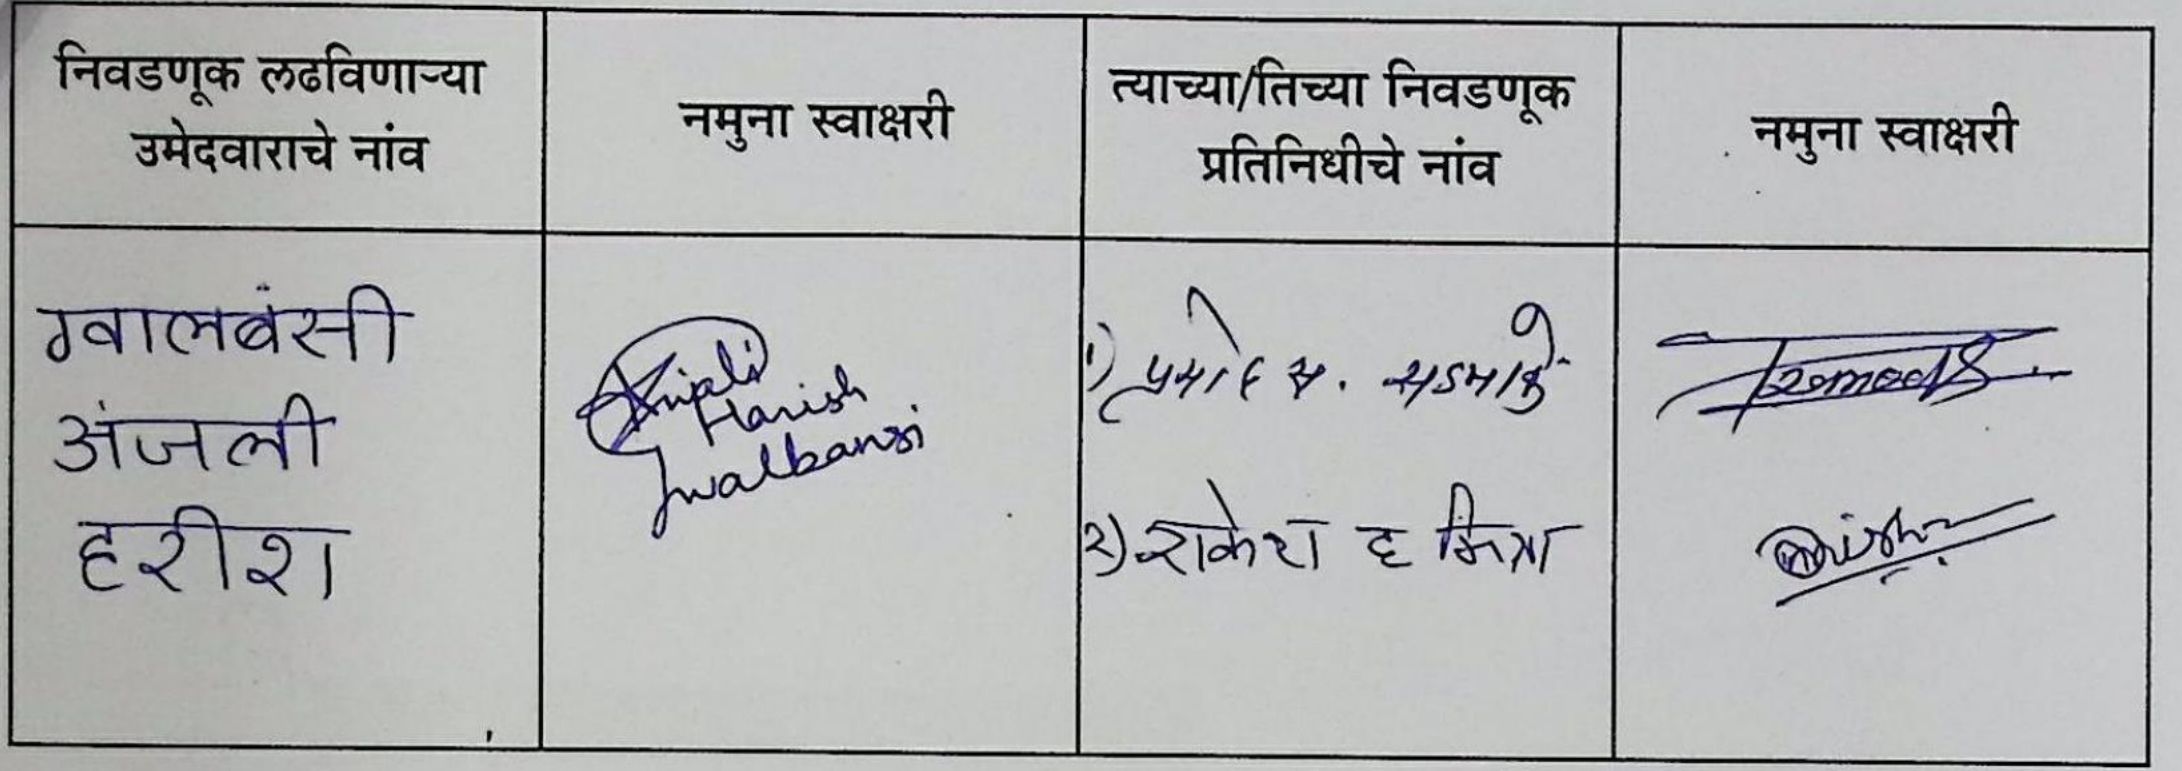 निवडणूक लढविणाऱ्या
उमेदवाराचे नांव
नमुना स्वाक्षरी
त्याच्या/तिच्या निवडणूक
प्रतिनिधीचे नांव
नमुना स्वाक्षरी
ग्वालबंसी
अंजली
हरीश
Anjali
Harish
Gwalbansi
१) प्रमोद स.
Pramod
२) राकेश द मिश्रा